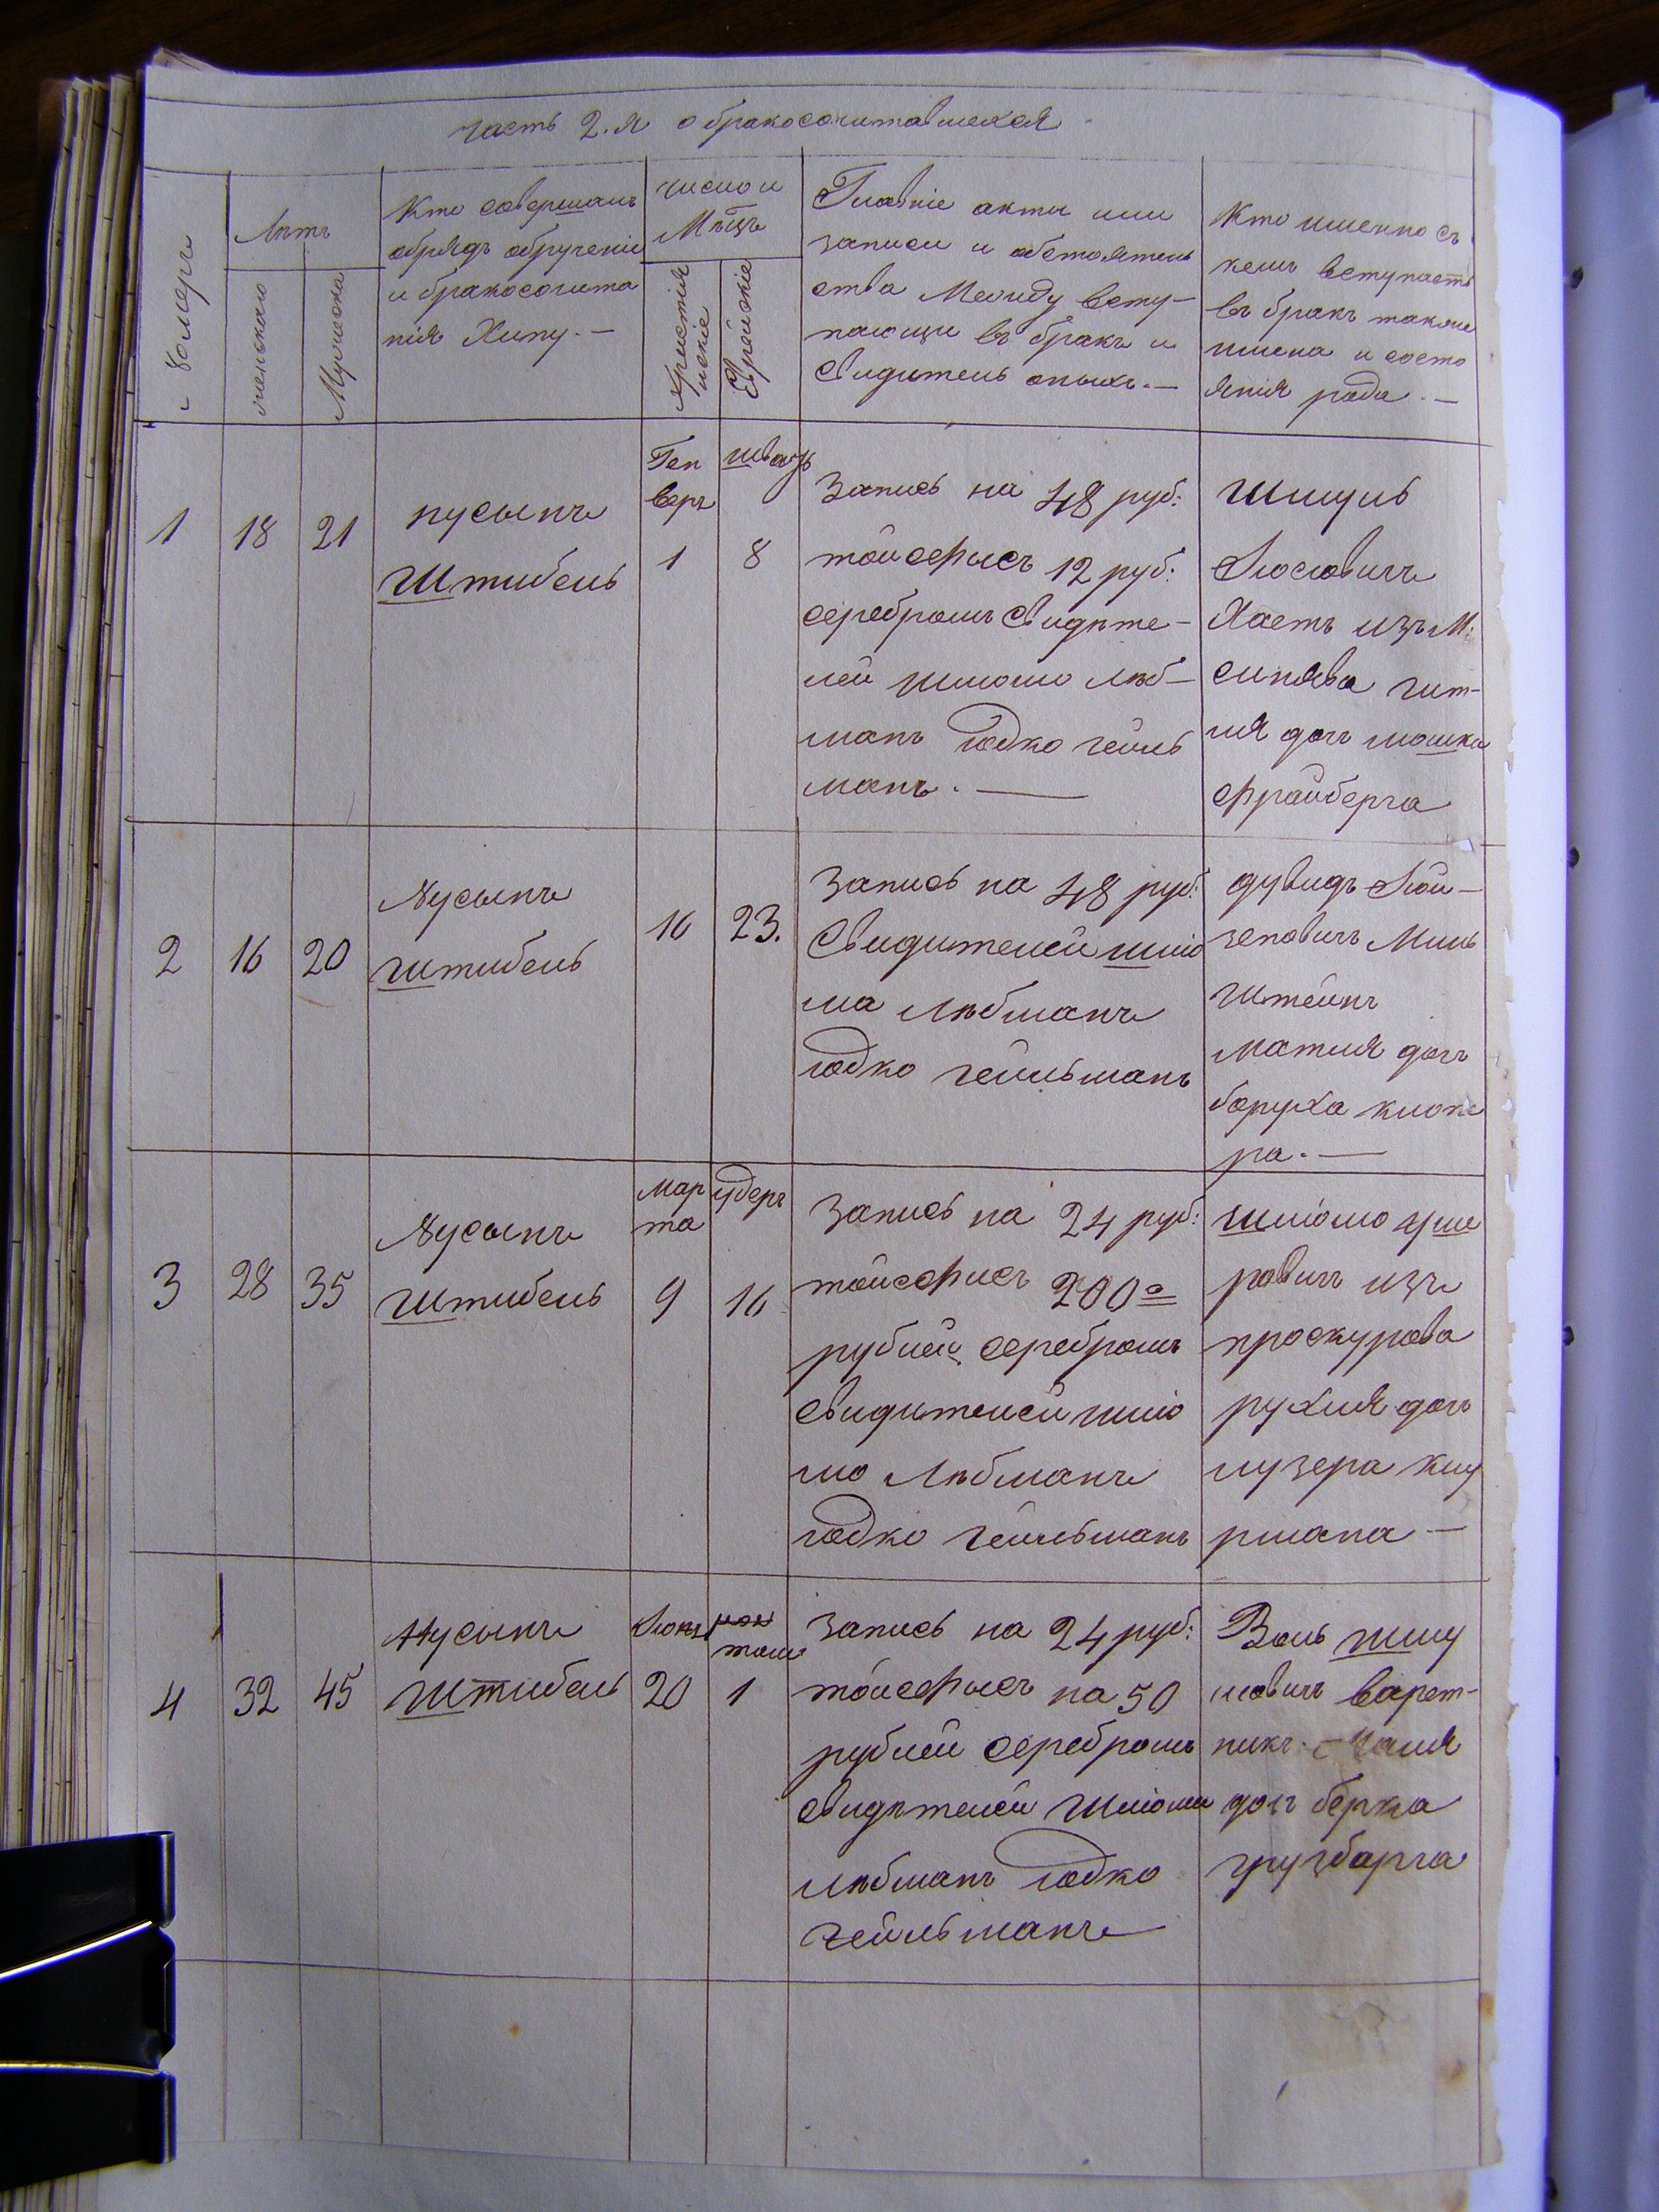 часть 2.я о бракосочитавшехся
номеръ
Лѣтъ
женскаго
Мужеска
Кто совершалъ
обрядъ обрученіе
и бракосочита
нія Хипу. —
число и
Мѣцъ
Христія
нскіе
Еврейскіе
Главніе акты или
записи и обстоятель
ства Между всту-
пающи въ бракъ и
свидѣтель оныхъ. —
Кто именно съ
кемъ вступаетъ
въ бракъ также
имена и состо
янія рода. —
1
18
21
нусынъ
Штибель
Ген
варь
1
шватъ
8
Запись на 48 руб:
тойсефысъ 12 руб:
серебромъ свидѣте-
лей шліомо лѣб-
манъ іодко гейль
манъ. —
Шмуль
Іосіовичъ
Хаетъ изъ М:
синява гит-
ля доч мошка
фрайберга
2
16
20
Нусынъ
Штибель
16
23.
Запись на 48 руб:
Свидителей шліо
ма Лѣбманъ
іодко гейльманъ
дувидъ Іой-
зеповичъ Миль
штейнъ
матля доч
боруха
ра. —
3
28
35
Нусынъ
Штибель
Мар
та
9
удеръ
16
Запись на 24 руб:
тойсефисъ 200=
рублей серебромъ
свидѣтелей шліо
мо Лѣбманъ
іодко гейльманъ
шліомо
ровичъ изъ
проскурова
рухля доч
лузера
рмана —
4
32
45
Нусынъ
Штибель
Іюня
20
1
Запись на 24 руб:
тойсефысъ на 50
рублей серебромъ
свидѣтелей Шліома
лѣбманъ іодко
гейльманъ
Воль шму
ловичъ варет-
никъ. —
доч берка
грузбарга